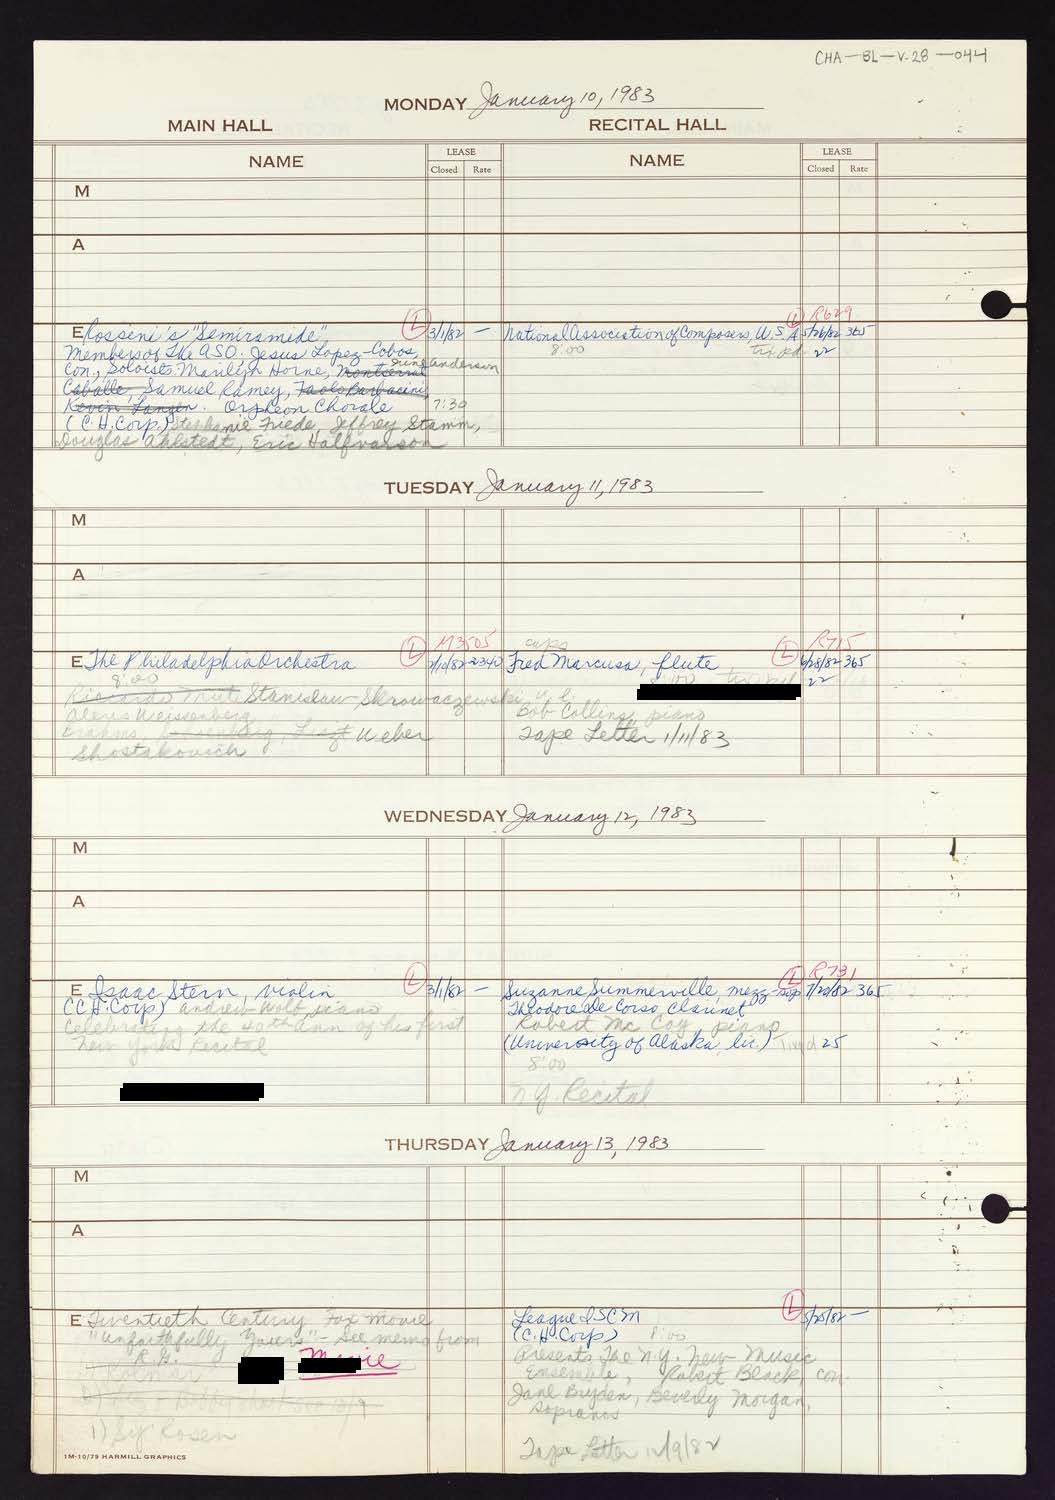 CHA-BL-V-28-044
MONDAY January 10, 1983
MAIN HALL RECITAL HALL
NAME LEASE NAME LEASE
Closed Rate Closed Rate
M
A
E Rossini's "Semiramide" (L) 3/1/82 —
Members of the ASO. Jesus Lopez-Cobos,
Con., Soloists: Marilyn Horne, Montserrat June Anderson
Caballe, Samuel Ramey, Paolo Barbacini,
Kevin Langan. Orpheon Chorale 7:30
(C.H. Corp.) Stephanie Friede, Jeffrey Stamm,
Douglas Ahlstedt, Eric Halfvarson
(L) R629
National Association of Composers, U.S.A. 5/26/82 365
8:00 22
TUESDAY January 11, 1983
M
A
(L) M3505
E The Philadelphia Orchestra 2340
8:00
Riccardo Muti Stanislaw Skrowaczewski
Alexis Weissenberg
Brahms, Liszt Weber
Shostakovich
(L) R715
Fred Marcusa, flute 6/28/82 365
8:00 22
Bob Collins, piano
Tape Letter 1/11/83
WEDNESDAY January 12, 1983
M
A
E Isaac Stern, violin (L) 3/1/82 —
(C.H. Corp) Andrew Wolf, piano
Celebrating the 40th ann of his first
New York Recital
(L) R731
Suzanne Summerville, mezz-sop 7/20/82 365
Theodore De Corso, Clarinet
Robert Mc Coy, piano
(University of Alaska, lic.) 25
8:00
N.Y. Recital
THURSDAY January 13, 1983
M
A
E Twentieth Century Fox Movie
"Unfaithfully Yours" - See memo from
R.G.
Movie
1) Sy Rosen
(L)
League ISCM 5/25/82 —
(C.H. Corp) 8:00
Presents The N.Y. New Music
Ensemble, Robert Black, con
Jane Bryden, Beverly Morgan,
Sopranos
Tape Letter 12/9/82
1M-10/79 HARMILL GRAPHICS